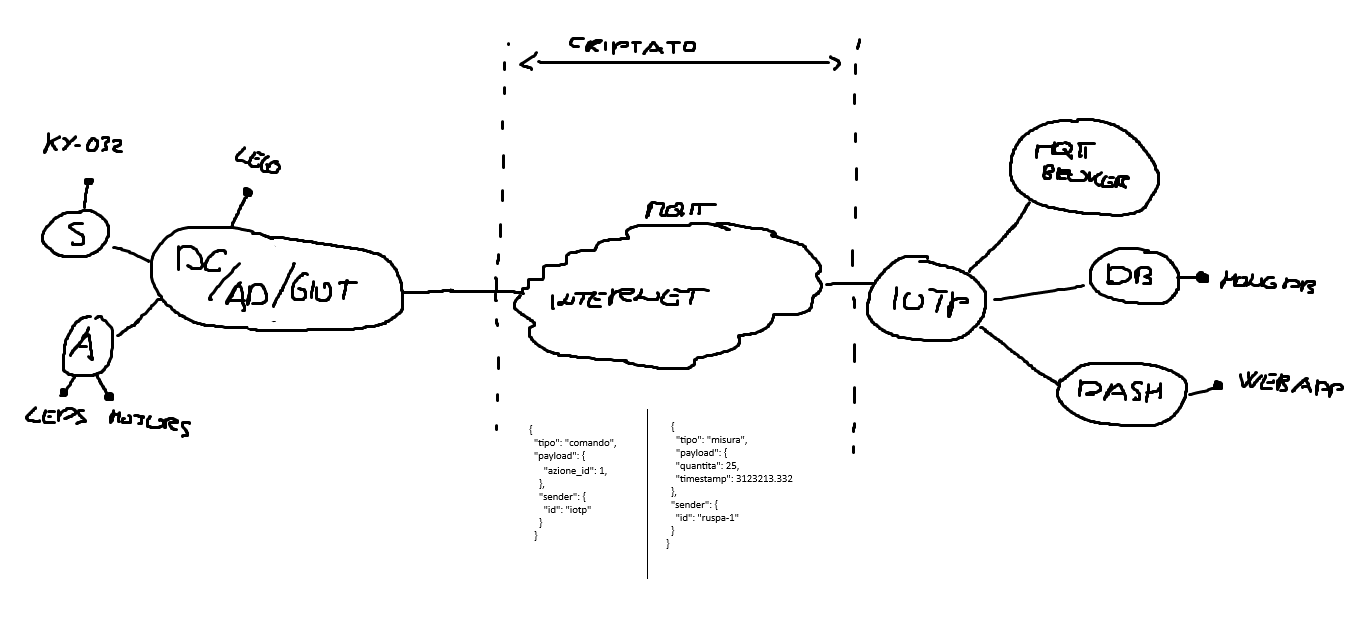 CRIPTATO
KY-032
LEGO
S
DC/AD/GIOT
A
LEDS MOTORS
MQTT
INTERNET
IOTP
MQTT
BROKER
DB
MONGDB
DASH
WEBAPP
{
"tipo": "comando",
"payload": {
"azione_id": 1,
},
"sender": {
"id": "iotp"
}
}
{
"tipo": "misura",
"payload": {
"quantita": 25,
"timestamp": 3123213.332
},
"sender": {
"id": "ruspa-1"
}
}